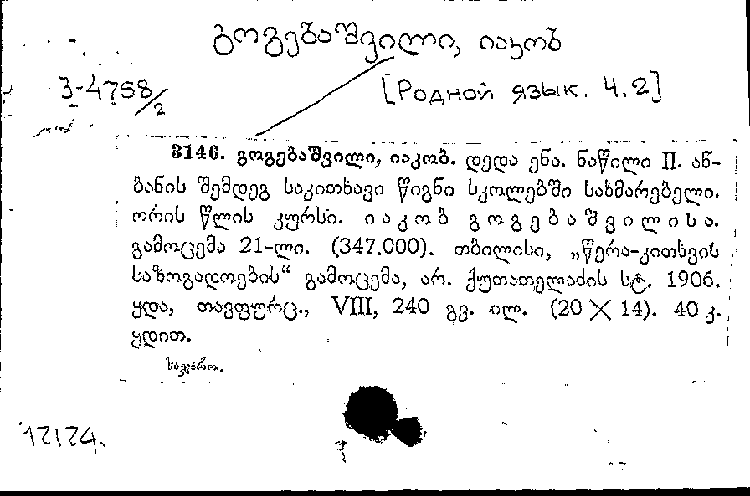 გოგებაშვილი, იაკობ
3-4758/2
[Родной язык. Ч.2]
3146. გოგებაშვილი, იაკობ. დედა ენა. ნაწილი II. ან-
ბანის შემდეგ საკითხავი წიგნი სკოლებში სახმარებელი.
ორის წლის კურსი. იაკობ გოგებაშვილისა.
გამოცემა 21-ლი. (347.000). თბილისი, „წერა-კითხვის
საზოგადოების“ გამოცემა, არ. ქუთათელაძის სტ. 1906.
ყდა, თავფურც., VIII, 240 გვ. ილ. (20 X 14). 40 კ.
ყდით.
საჯარო.
12124.